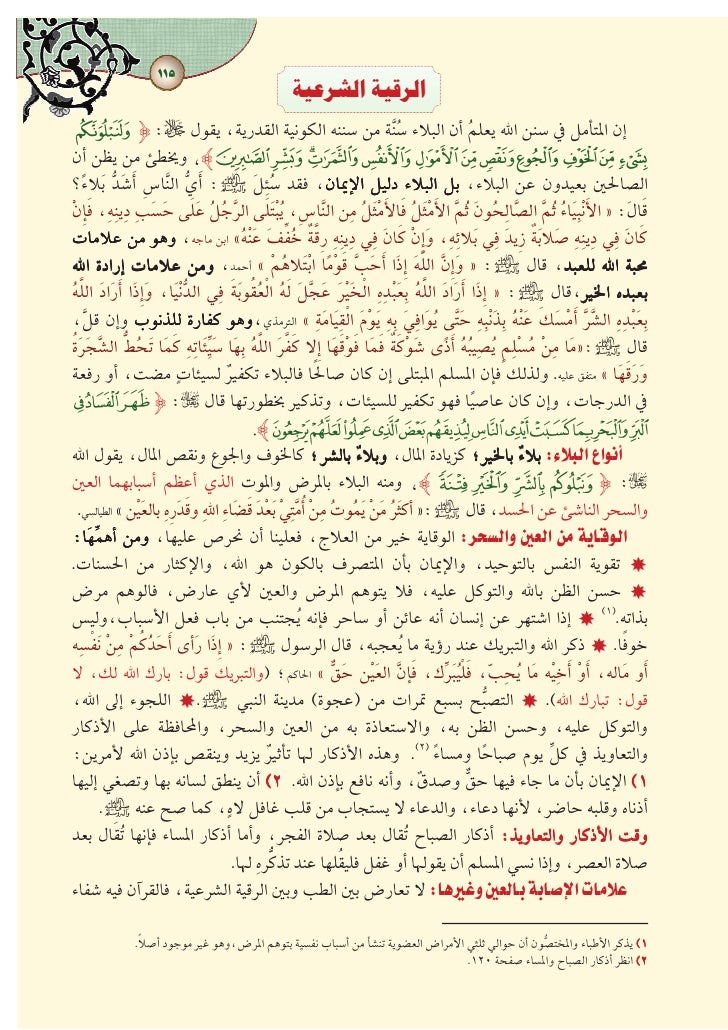 ١١٥
الرقية الشرعية
إن المتأمل في سنن الله يعلمُ أن البلاء سُنَّة من سننه الكونية القدرية، يقول ﷻ: ﴿ وَلَنَبْلُوَنَّكُم
بِشَىْءٍ مِّنَ ٱلْخَوْفِ وَٱلْجُوعِ وَنَقْصٍ مِّنَ ٱلْأَمْوَٰلِ وَٱلْأَنفُسِ وَٱلثَّمَرَٰتِ ۗ وَبَشِّرِ ٱلصَّٰبِرِينَ ﴾، ويخطئ من يظن أن
الصالحين بعيدون عن البلاء، بل البلاء دليل الإيمان، فقد سُئِلَ ﷺ: أَيُّ النَّاسِ أَشَدُّ بَلاءً؟
قَالَ: « الأَنْبِيَاءُ ثُمَّ الصَّالِحُونَ ثُمَّ الأَمْثَلُ فَالأَمْثَلُ مِن النَّاسِ، يُبْتَلَى الرَّجُلُ عَلَى حَسَبِ دِينِهِ، فَإِنْ
كَانَ فِي دِينِهِ صَلابَةٌ زِيدَ فِي بَلائِهِ، وَإِنْ كَانَ فِي دِينِهِ رِقَّةٌ خُفِّفَ عَنْهُ» ابن ماجه، وهو من علامات
محبة الله للعبد، قال ﷺ: « وَإِنَّ اللَّهَ إِذَا أَحَبَّ قَوْمًا ابْتَلاهُمْ » أحمد، ومن علامات إرادة الله
بعبده الخير، قال ﷺ: « إِذَا أَرَادَ اللَّهُ بِعَبْدِهِ الْخَيْرَ عَجَّلَ لَهُ الْعُقُوبَةَ فِي الدُّنْيَا، وَإِذَا أَرَادَ اللَّهُ
بِعَبْدِهِ الشَّرَّ أَمْسَكَ عَنْهُ بِذَنْبِهِ حَتَّى يُوَافِيَ بِهِ يَوْمَ الْقِيَامَةِ » الترمذي، وهو كفارة للذنوب وإن قلَّ،
قال ﷺ: «مَا مِنْ مُسْلِمٍ يُصِيبُهُ أَذًى شَوْكَةٌ فَمَا فَوْقَهَا إِلا كَفَّرَ اللَّهُ بِهَا سَيِّئَاتِهِ كَمَا تَحُطُّ الشَّجَرَةُ
وَرَقَهَا » متفق عليه. ولذلك فإن المسلم المبتلى إن كان صالحًا فالبلاء تكفيرٌ لسيئاتٍ مضت، أو رفعة
في الدرجات، وإن كان عاصيًا فهو تكفير للسيئات، وتذكير بخطورتها قال ﷻ: ﴿ ظَهَرَ ٱلْفَسَادُ فِى
ٱلْبَرِّ وَٱلْبَحْرِ بِمَا كَسَبَتْ أَيْدِى ٱلنَّاسِ لِيُذِيقَهُم بَعْضَ ٱلَّذِى عَمِلُوا۟ لَعَلَّهُمْ يَرْجِعُونَ ﴾.
أنواع البلاء: بلاءٌ بالخير؛ كزيادة المال، وبلاءٌ بالشر؛ كالخوف والجوع ونقص المال، يقول الله
ﷻ: ﴿ وَنَبْلُوكُم بِٱلشَّرِّ وَٱلْخَيْرِ فِتْنَةً ﴾، ومنه البلاء بالمرض والموت الذي أعظم أسبابهما العين
والسحر الناشئ عن الحسد، قال ﷺ: « أَكثَرُ مَنْ يَمُوتُ مِنْ أُمَّتِي بَعْدَ قَضَاءِ اللهِ وَقَدَرِهِ بالعَيْن » الطيالسي.
الوقاية من العين والسحر: الوقاية خير من العلاج، فعلينا أن نحرص عليها، ومن أهمِّهَا:
✸ تقوية النفس بالتوحيد، والإيمان بأن المتصرف بالكون هو الله، والإكثار من الحسنات.
✸ حسن الظن بالله والتوكل عليه، فلا يتوهم المرض والعين لأي عارض، فالوهم مرض
بذاته.(١) ✸ إذا اشتهر عن إنسان أنه عائن أو ساحر فإنه يُجتنب من باب فعل الأسباب، وليس
خوفًا. ✸ ذكر الله والتبريك عند رؤية ما يُعجبه، قال الرسول ﷺ: « إِذَا رَأى أَحَدُكُمْ مِنْ نَفْسِه
أَو مَاله، أَوْ أَخِيْه مَا يُحِبّ، فَلْيُبَرِّك، فَإِنَّ العَيْن حَقٌّ » الحاكم؛ (والتبريك قول: بارك الله لك، لا
قول: تبارك الله). ✸ التصبُّح بسبع تمرات من (عجوة) مدينة النبي ﷺ. ✸ اللجوء إلى الله،
والتوكل عليه، وحسن الظن به، والاستعاذة به من العين والسحر، والمحافظة على الأذكار
والتعاويذ في كلِّ يوم صباحًا ومساءً (٢). وهذه الأذكار لها تأثيرٌ يزيد وينقص بإذن الله لأمرين:
١) الإيمان بأن ما جاء فيها حقٌّ وصدقٌ، وأنه نافع بإذن الله. ٢) أن ينطق لسانه بها وتصغي إليها
أذناه وقلبه حاضر، لأنها دعاء، والدعاء لا يستجاب من قلب غافل لاهٍ، كما صح عنه ﷺ.
وقت الأذكار والتعاويذ: أذكار الصباح تُقال بعد صلاة الفجر، وأما أذكار المساء فإنها تُقال بعد
صلاة العصر، وإذا نسي المسلم أن يقولها أو غفل فليقُلها عند تذكُّرِهِ لها.
علامات الإصابة بالعين وغيرها: لا تعارض بين الطب وبين الرقية الشرعية، فالقرآن فيه شفاء
١) يذكر الأطباء والمختصُّون أن حوالي ثلثي الأمراض العضوية تنشأ من أسباب نفسية بتوهم المرض، وهو غير موجود أصلاً.
٢) انظر أذكار الصباح والمساء صفحة ١٢٠.